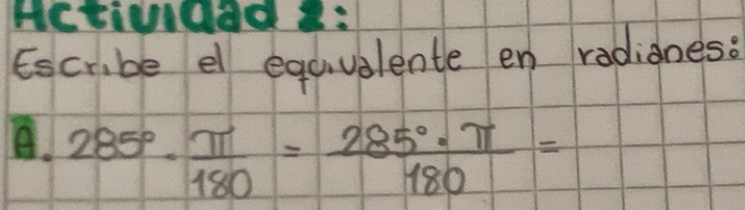 Actividad 2:
Escribe el equivalente en radianes:
A. 285° · π/180 = 285° · π/180 =